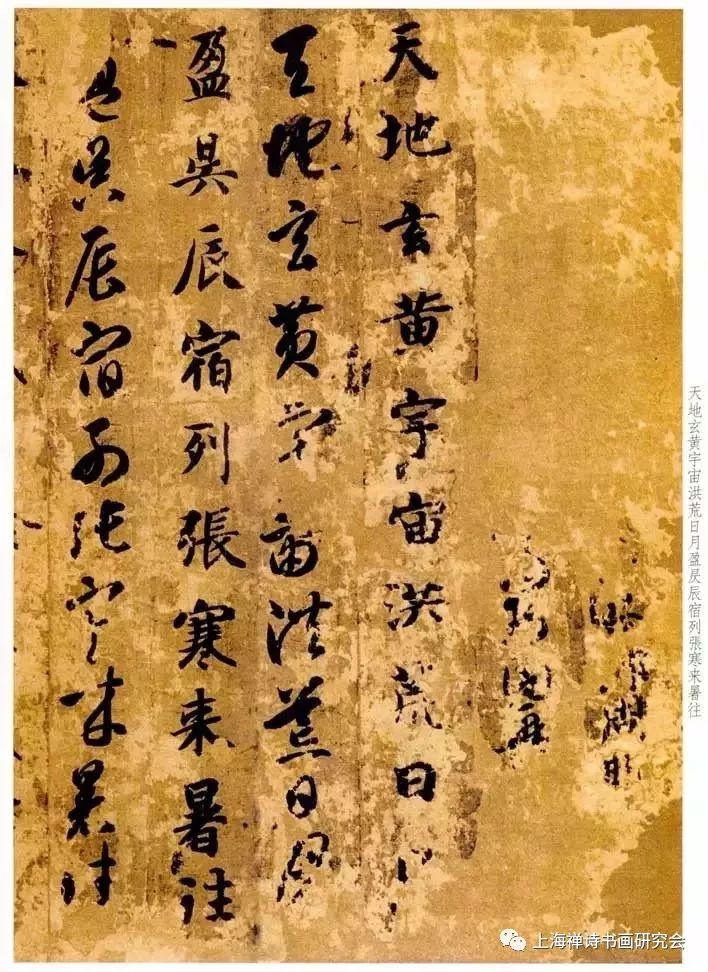 天地玄黄宇宙洪荒日月盈昃辰宿列張寒来暑往
天地玄黄宇宙洪荒日月
天地玄黄宇宙洪荒日月
盈昃辰宿列張寒来暑往
盈昃辰宿列張寒来暑往
上海禅诗书画研究会